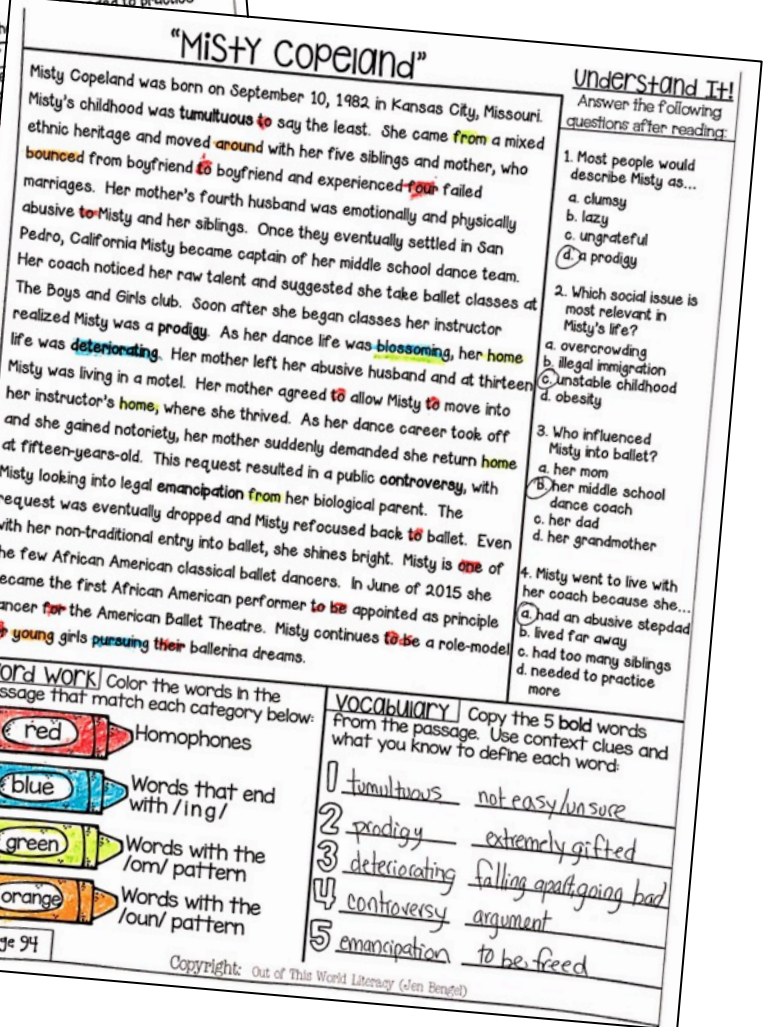 "Misty Copeland"
Misty Copeland was born on September 10, 1982 in Kansas City, Missouri.
Misty's childhood was tumultuous to say the least. She came from a mixed
ethnic heritage and moved around with her five siblings and mother, who
bounced from boyfriend to boyfriend and experienced four failed
marriages. Her mother's fourth husband was emotionally and physically
abusive to Misty and her siblings. Once they eventually settled in San
Pedro, California Misty became captain of her middle school dance team.
Her coach noticed her raw talent and suggested she take ballet classes at
The Boys and Girls club. Soon after she began classes her instructor
realized Misty was a prodigy. As her dance life was blossoming, her home
life was deteriorating. Her mother left her abusive husband and at thirteen
Misty was living in a motel. Her mother agreed to allow Misty to move into
her instructor's home, where she thrived. As her dance career took off
and she gained notoriety, her mother suddenly demanded she return home
at fifteen-years-old. This request resulted in a public controversy, with
Misty looking into legal emancipation from her biological parent. The
request was eventually dropped and Misty refocused back to ballet. Even
with her non-traditional entry into ballet, she shines bright. Misty is one of
he few African American classical ballet dancers. In June of 2015 she
ecame the first African American performer to be appointed as principle
ancer for the American Ballet Theatre. Misty continues to be a role-model
young girls pursuing their ballerina dreams.
Understand It!
Answer the following
questions after reading:
1. Most people would
describe Misty as...
a. clumsy
b. lazy
c. ungrateful
d. a prodigy
2. Which social issue is
most relevant in
Misty's life?
a. overcrowding
b. illegal immigration
c. unstable childhood
d. obesity
3. Who influenced
Misty into ballet?
a. her mom
b. her middle school
dance coach
c. her dad
d. her grandmother
4. Misty went to live with
her coach because she...
a. had an abusive stepdad
b. lived far away
c. had too many siblings
d. needed to practice
more
ord Work Color the words in the
ssage that match each category below:
red Homophones
blue Words that end
with /ing/
green Words with the
/om/ pattern
orange Words with the
/oun/ pattern
ge 94
Vocabulary Copy the 5 bold words
from the passage. Use context clues and
what you know to define each word:
1 tumultuous not easy/unsure
2 prodigy extremely gifted
3 deteriorating falling apart, going bad
4 controversy argument
5 emancipation to be freed
Copyright: Out of This World Literacy (Jen Bengel)